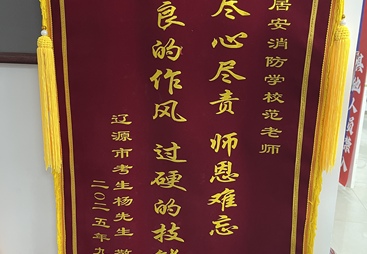 居安消防学校范老师
尽心尽责 师恩难忘
良的作风 过硬的技能
辽源市考生杨先生 敬
二〇二五年九
人员